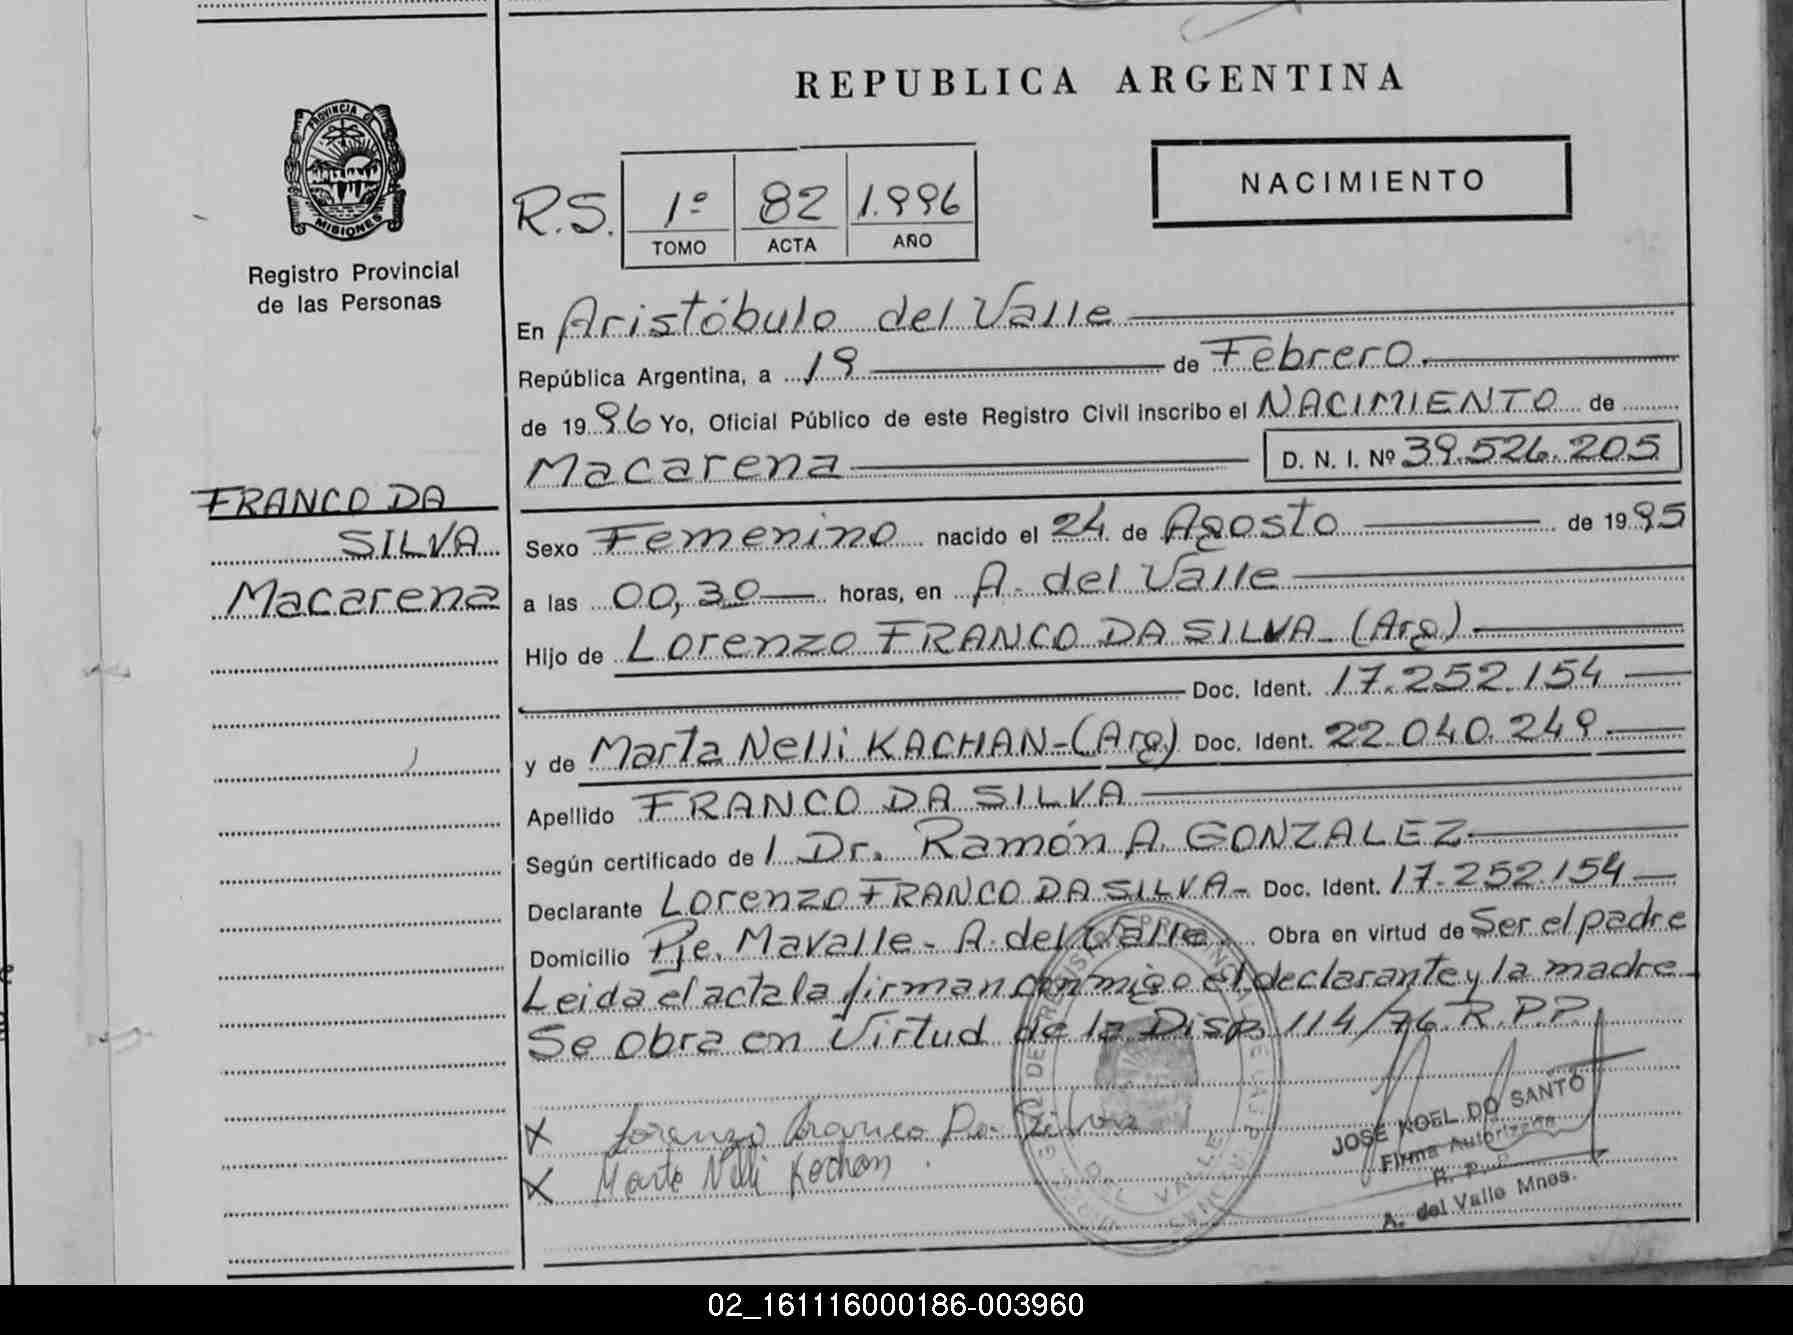 REPUBLICA ARGENTINA
PROVINCIA DE
MISIONES
Registro Provincial
de las Personas
NACIMIENTO
R.S. 1º 82 1.996
TOMO ACTA AÑO
En Aristóbulo del Valle
República Argentina, a 19 de Febrero
de 1996 Yo, Oficial Público de este Registro Civil inscribo el NACIMIENTO de
Macarena D. N. I. Nº 39.526.205
FRANCO DA
SILVA
Macarena
Sexo Femenino nacido el 24 de Agosto de 1995
a las 00,30 horas, en A. del Valle
Hijo de Lorenzo FRANCO DA SILVA - (Arg)
Doc. Ident. 17.252.154
y de Marta Nelli KACHAN - (Arg) Doc. Ident. 22.040.249
Apellido FRANCO DA SILVA
Según certificado de l Dr. Ramón A. GONZALEZ
Declarante Lorenzo FRANCO DA SILVA - Doc. Ident. 17.252.154
Domicilio Pje. Mavalle - A. del Valle Obra en virtud de Ser el padre
Leida el acta la firman conmigo el declarante y la madre
Se obra en Virtud de la Disp. 114/76 R.P.P.
X Lorenzo Franco Da Silva
X Marta Nelli Kachan
JOSE NOEL DO SANTO
Firma Autorizada
R. P. P.
A. del Valle Mnes.
02_161116000186-003960